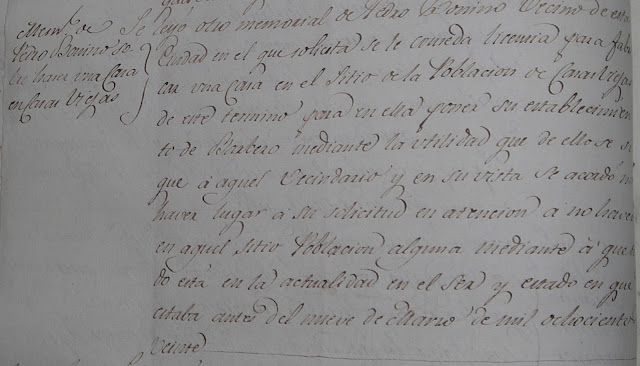 Meml. de
Pedro Bonino so-
bre hacer una Casa
en Casas Viejas
Se leyó otro memorial de Pedro Bonino Vecino de esta
Ciudad en el que solicita se le conceda licencia para fabri
car una casa en el Sitio de la Poblacion de Casas Viejas
de este termino para en ella poner su establecimien
to de Barbero mediante la utilidad que de ello se si
gue á aquel Vecindario y en su vista se acordó no
haver lugar á su solicitud en atencion á no haver
en aquel Sitio Poblacion alguna mediante á que to
do está en la actualidad en el Ser y estado en que
estaba antes del nueve de Marzo de mil ochocientos
veinte